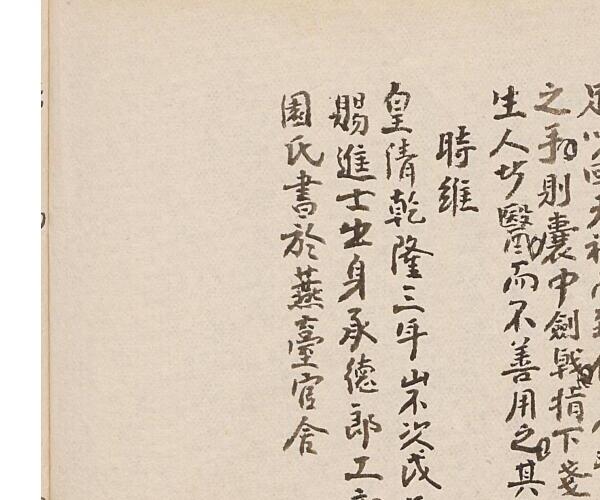 之手則囊中劍戟指下
生人 醫而不善用之其
時維
皇清乾隆三年 次戊
賜進士出身承德郎工
園氏書於燕臺官舍